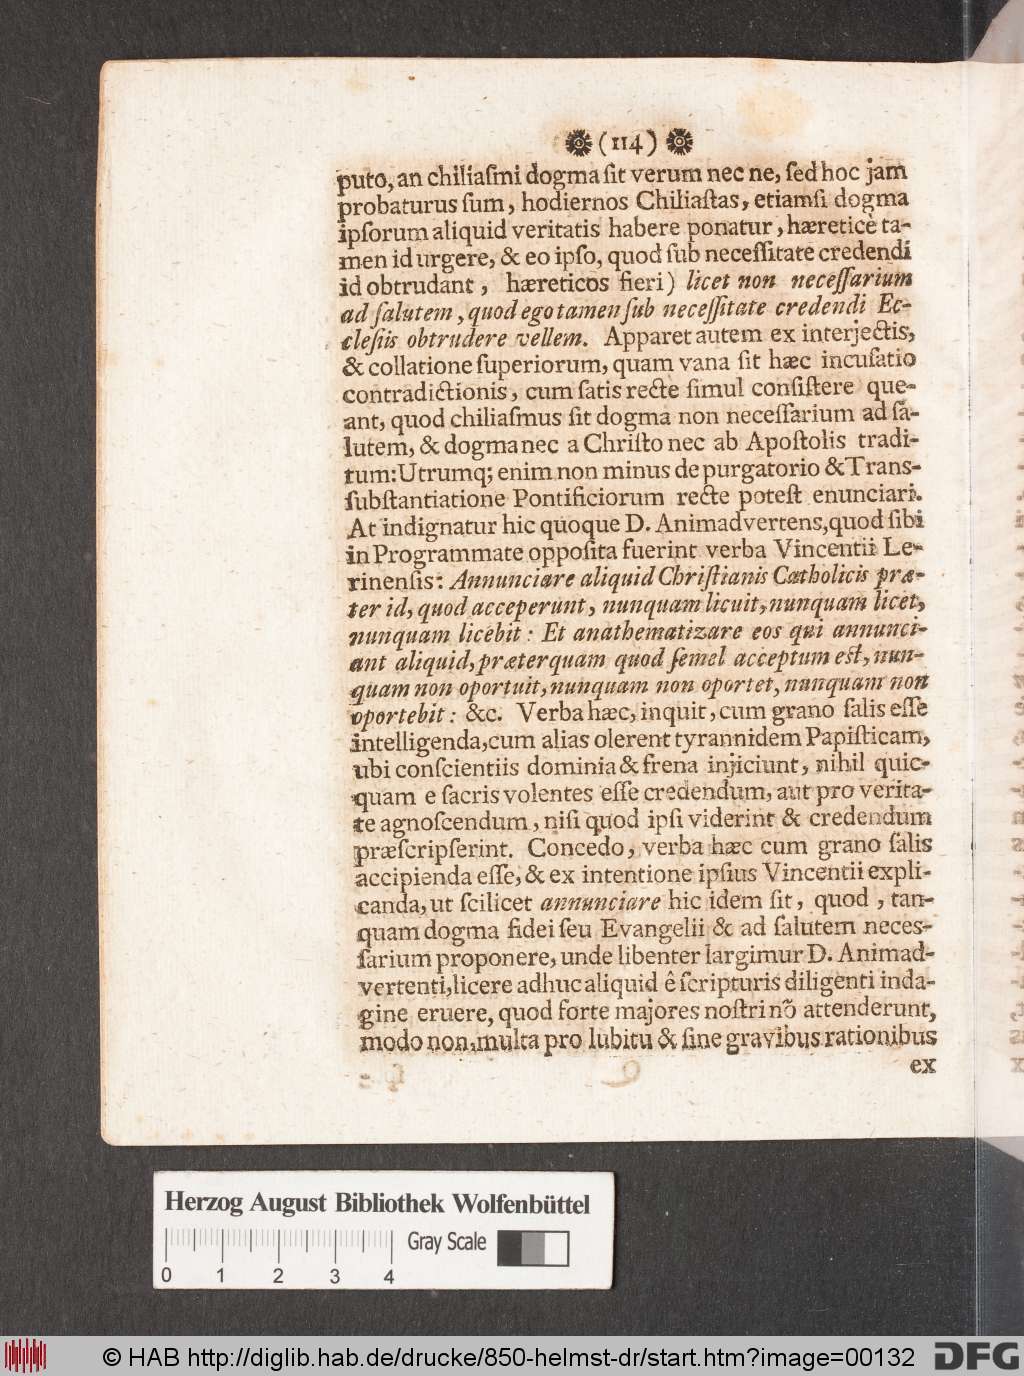 (114)
puto, an chiliaſmi dogma ſit verum nec ne, ſed hoc jam
probaturus ſum, hodiernos Chiliaſtas, etiamſi dogma
ipſorum aliquid veritatis habere ponatur, hæreticè ta-
men id urgere, & eo ipſo, quod ſub neceſſitate credendi
id obtrudant, hæreticos fieri) licet non neceſſarium
ad ſalutem, quod ego tamen ſub neceſſitate credendi Ec-
cleſiis obtrudere vellem. Apparet autem ex interjectis,
& collatione ſuperiorum, quam vana ſit hæc incuſatio
contradictionis, cum ſatis recte ſimul conſiſtere que-
ant, quod chiliaſmus ſit dogma non neceſſarium ad ſa-
lutem, & dogma nec a Chriſto nec ab Apoſtolis tradi-
tum: Utrumq; enim non minus de purgatorio & Trans-
ſubſtantiatione Pontificiorum recte poteſt enunciari.
At indignatur hic quoque D. Animadvertens, quod ſibi
in Programmate oppoſita fuerint verba Vincentii Le-
rinenſis: Annunciare aliquid Chriſtianis Catholicis præ-
ter id, quod acceperunt, nunquam licuit, nunquam licet,
nunquam licebit: Et anathematizare eos qui annunci-
ant aliquid, præterquam quod ſemel acceptum eſt, nun-
quam non oportuit, nunquam non oportet, nunquam non
oportebit: &c. Verba hæc, inquit, cum grano ſalis eſſe
intelligenda, cum alias olerent tyrannidem Papiſticam,
ubi conſcientiis dominia & frena injiciunt, nihil quic-
quam e ſacris volentes eſſe credendum, aut pro verita-
te agnoſcendum, niſi quod ipſi viderint & credendum
præſcripſerint. Concedo, verba hæc cum grano ſalis
accipienda eſſe, & ex intentione ipſius Vincentii expli-
canda, ut ſcilicet annunciare hic idem ſit, quod, tan-
quam dogma fidei ſeu Evangelii & ad ſalutem neceſ-
ſarium proponere, unde libenter largimur D. Animad-
vertenti, licere adhuc aliquid ê ſcripturis diligenti inda-
gine eruere, quod forte majores noſtri nõ attenderunt,
modo non multa pro lubitu & ſine gravibus rationibus
ex
Herzog August Bibliothek Wolfenbüttel
Gray Scale
0 1 2 3 4
© HAB http://diglib.hab.de/drucke/850-helmst-dr/start.htm?image=00132
DFG